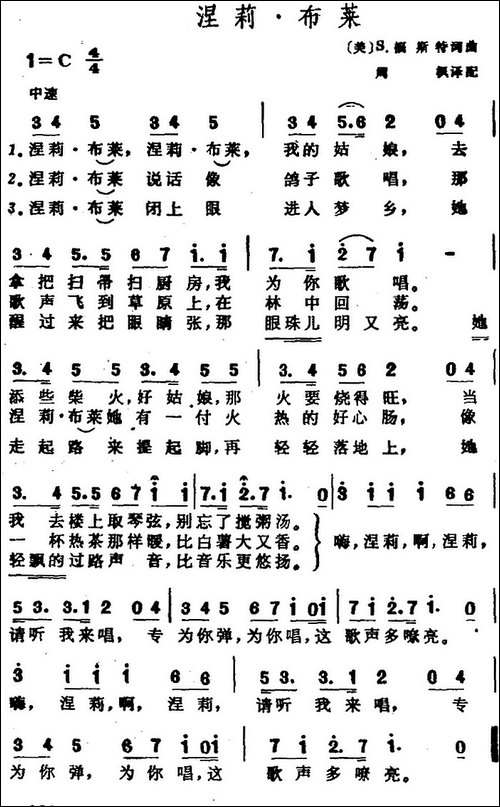 涅莉·布莱
〔美〕S.福斯特词曲
1=C 4/4
周 枫译配
中速
3 4 5 3 4 5 | 3 4 5.6 2 0 4
1.涅莉·布莱，涅莉·布莱，我的姑娘，去
2.涅莉·布莱说话像鸽子歌唱，那
3.涅莉·布莱闭上眼进入梦乡，她
3 4 5.5 6 7 1.1 | 7.1 2 7 1 -
拿把扫帚扫厨房，我为你歌唱。
歌声飞到草原上，在林中回荡。
醒过来把眼睛张，那眼珠儿明又亮。她
3.4 5 5 3.4 5 5 | 3.4 5 6 2 0 4
添些柴火，好姑娘，那火要烧得旺，当
涅莉·布莱她有一付火热的好心肠，像
走起路来提起脚，再轻轻落地上，她
3.4 5.5 6 7 1 1 | 7.1 2.7 1. 0 | 3 1 1 1 6 6
我去楼上取琴弦，别忘了搅粥汤。
一杯热茶那样暖，比白薯大又香。
轻飘的过路声音，比音乐更悠扬。
嗨，涅莉，啊，涅莉，
5 3. 3.1 2 0 4 | 3 4 5 6 7 1 01 | 7 1 2.7 1. 0
请听我来唱，专为你弹，为你唱，这歌声多嘹亮。
3 1 1 1 6 6 | 5 3. 3.1 2 0 4
嗨，涅莉，啊，涅莉，请听我来唱，专
3 4 5 6 7 1 01 | 7 1 2.7 1. 0
为你弹，为你唱，这歌声多嘹亮。